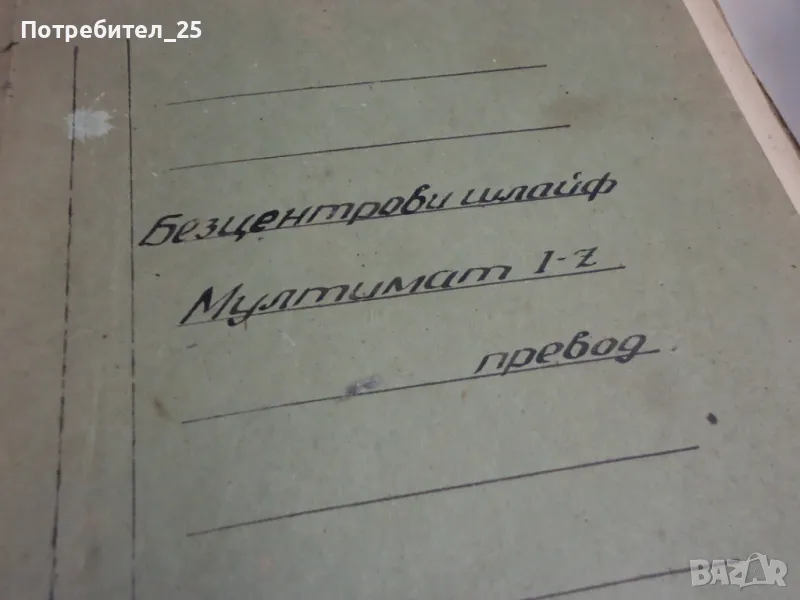 Потребител_25
Безцентрови шлайф
Мултимат 1-Z
превод
BAZAR